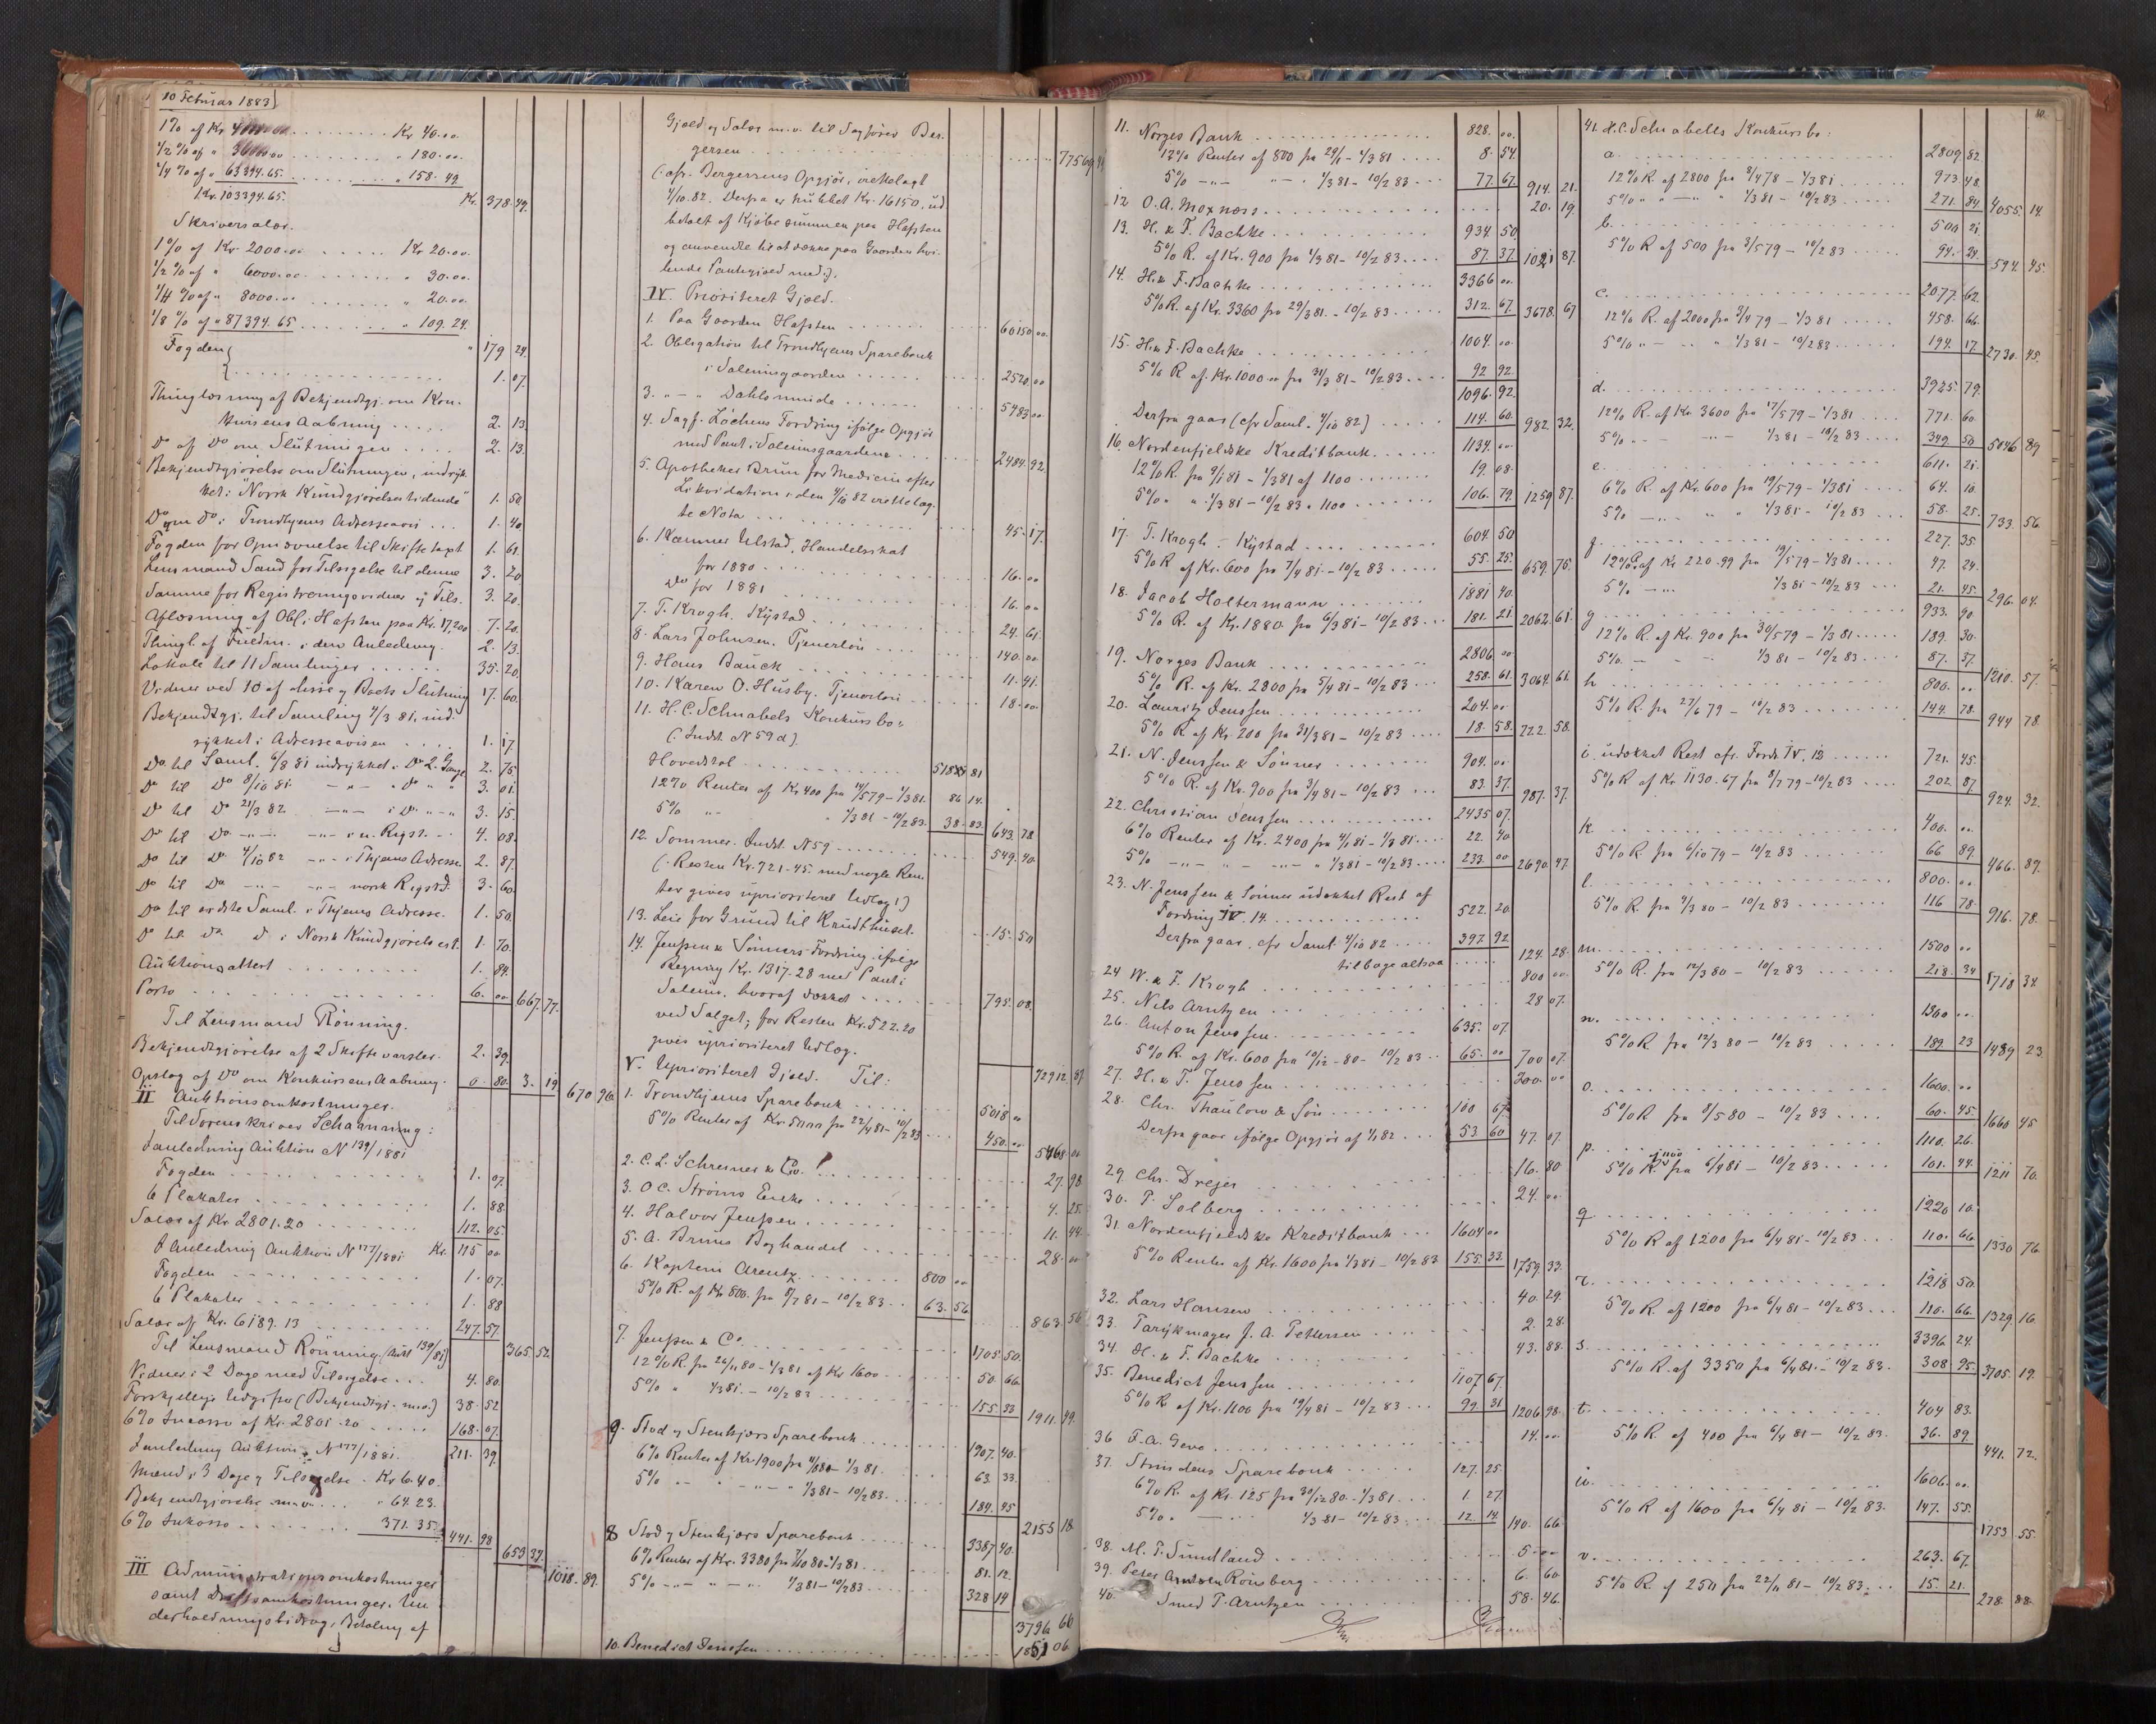 10 Februar 1883
1% af Kr. ..... Kr. 40.00
1/2 % af " ..... " 180.00.
1/4 % af " 63394.65. ..... " 158.49.
Kr. 103394.65. Kr. 378.49.
Skriversalær.
1% af Kr. 2000.00 ..... Kr 20.00.
1/2 % af " 6000.00 ..... " 30.00.
1/4 % af " 8000.00 ..... " 20.00.
1/8 % af " 87394.65 ..... " 109.24.
" 179 24.
Fogden ..... 1. 07.
Thinglæsning af Bekjendtgj. om Kon-
kursens Aabning ..... 2. 13.
Do af Do om Slutningen ..... 2. 13.
Bekjendtgjørelse om Slutningen, indryk-
ket i "Norsk Kundgjørelsestidende" 1. 50
Do om Do i Trondhjems Adresseavis ... 1. 40.
Fogden for Opnævnelse til Skiftetaxt 1. 61.
Lensmand Sand for Tilsigelse til denne 3. 20
Samme for Registreringsvidner og Tils. 3. 20.
Aflæsning af Obl. i Hafsten paa Kr. 17,200 7. 20.
Thingl. af Fuldm. i den Anledning. 2. 13.
Lokale til 11 Samlinger ..... 35. 20.
Vidner ved 10 af disse og Boets Slutning 17. 60.
Bekjendtgj. til Samling 4/3 81, ind-
rykket i Adresseavisen ..... 1. 17
Do til Saml. 6/8 81 indrykket i Do 2 Gange 2. 75.
Do til Do 8/10 81 -"- " Do " " 3. 01.
Do til Do 21/3 82 -"- i Do " -" 3. 15.
Do til Do -"- -"- i n. Rigst. - 4. 08.
Do til Do 4/10 82 -"- i Thjems Adresse. 2. 87.
Do til Do -"- -"- norsk Rigstd. 3. 60.
Do til sidste Saml. i Thjems Adresse. 1. 50.
Do til Do D i Norsk Kundgjørelsest. 1. 70.
Auktionsattest ..... 1. 84.
Porto ..... 6. 00 667. 77.
Til Lensmand Rönning.
Bekjendtgjørelse af 2 Skiftevarsler. 2. 39.
Opslag af Do om Konkursens Aabning. 0. 80. 3. 19 670 96.
II Auktionsomkostninger.
Til Sorenskriver Schanning:
I anledning Auktion N 139/1881
Fogden ..... 1. 07.
6 Plakater ..... 1. 88.
Salær af Kr. 2801.20 ..... 112. 05.
I Anledning Auktion N 177/1881 Kr. 115 00
Fogden ..... 1. 07.
6 Plakater ..... 1. 88
Salær af Kr. 6189.13 ..... 247. 57.
365. 52
Til Lensmand Rönning (Aukt 139/81)
Vidner i 2 Dage med Tilsigelse ... 4. 80.
Forskjellige Udgifter (Bekjendtgj. m.v.) 38. 52
6% Inkasso af Kr. 2801.20 ..... 168. 07.
I anledning Auktion N 177/1881. 211. 39.
Mænd i 3 Dage og Tilsigelse. Kr 6.40.
Bekjendtgjørelse m.v. ... " 64.23.
6% Inkasso ..... 371.35. 441. 98
653 37. 1018. 89.
III Administrationsomkostninger
samt Driftsomkostninger. Un-
derholdningsbidrag, Betaling af
Gjæld og Salær m.v. til Sagfører Ber-
gersen .....
(cfr. Bergersens Opgjør, irettelagt
4/10.82. Derfra er hubbet Kr. 16150, ud
betalt af Kjøbesummen paa Hafsten
og anvendte til at dække paa Gaarden hvi-
lende Pantegjæld med).
IV. Prioriteret Gjæld.
1. Paa Gaarden Hafsten ..... 60150 00.
2. Obligation til Trondhjems Sparebank
i Saleinsgaarden ..... 2520. 00
3. -"- " Dahlsminde ..... 5483 00.
4. Sagf. Löchens Fordring ifølge Opgjør
med Pant i Saleinsgaardene ... 2484. 92.
5. Apotheker Brun for Medicin efter
Likvidation i den 4/10 82 irettelag-
te Nota ..... 45. 17.
6. Kæmner Ulstad, Handelsskat
for 1880 ..... 16. 00
Do for 1881 ..... 16. 00
7. T. Krogh. Kystad ..... 24. 61.
8. Lars Johnsen. Tjenerløn ..... 140. 00
9. Hans Bauck ..... 11. 41.
10. Karen O. Husby. Tjenerløn ..... 18. 00.
11. H. C. Schnabels Konkursbo:
(Indst. N 59 d).
Hovedstol ..... 81
12% Renter af Kr 400 fra 14/5 79 - 1/3 81. 86 14.
5% " - " 1/3 81 - 10/2 83. 38. 83. 643. 78
12. Sommer. Indst. N 59 ..... 549. 40.
(Resten Kr. 721.45. med nogle Ren-
ter gives uprioriteret Udlæg!)
13. Leie for Grund til Krudthuset. 15. 50
14. Jenssen & Sönners Fordring ifølge
Regning Kr. 1317.28 med Pant i
Salein, hvoraf dækket ..... 795. 08.
ved Salget; for Resten Kr. 522.20
gives uprioriteret Udlæg.
72912. 87.
V. Uprioriteret Gjæld. Til:
1. Trondhjems Sparebank ..... 5018 00
5% Renter af Kr. 5000 fra 22/4 81 - 10/2 83 ... 450. 00
5468 00
2. C. L. Schreiner & Co. ..... 27. 98
3. O C. Ströms Enke ..... 4. 25.
4. Halvor Jenssen ..... 11. 44.
5. A. Bruns Boghandel ..... 28. 00
6. Kaptein Arentz ..... 800 00
5% R. af Kr 800. fra 8/7 81 - 10/2 83 .. 63. 56.
863. 56
7. Jenssen & Co ..... 1705. 50.
12% R. fra 26/11 80 - 1/3 81 af Kr 1600 .... 50. 66.
5% " 1/3 81. - 10/2 83 ..... 155 33
1911. 49.
9. Stod og Stenkjærs Sparebank ..... 1907. 40.
6% Renter af Kr. 1900 fra - 1/3 81. 63. 33.
5% -" " - " - " 1/3 81 - 10/2 83. 184. 45
2155 18
8 Stod og Stenkjærs Sparebank ..... 3387 40.
6% Renter af Kr. 3380 fra 7/10 80 - 1/3 81. 81. 12.
5% -"- " -" 1/3 81 - 10/2 83 ..... 328 14
3796 66
10. Benedict Jenssen ..... 06.
11. Norges Bank ..... 828. 00.
12% Renter af 800 fra 29/1 - 1/3 81 .... 8. 54.
5% -"- " - 1/3 81 - 10/2 83 .... 77. 67. 914. 21.
12. O. A. Moxness ..... 20. 19.
13. H. & F. Bachke ..... 934 50.
5% R. af Kr. 900 fra 1/3 81 - 10/2 83 .... 87. 37. 1021 87.
14. H. & F. Bachke ..... 3366 00.
5% R. af Kr. 3360 fra 29/3 81. - 10/2 83 ..... 312. 67. 3678. 67
15. H. & F. Bachke ..... 1004. 00.
5% R. af. Kr. 1000.00 fra 31/3 81 - 10/2 83 .... 92 92.
1096. 92.
Derfra gaar (cfr Saml. 4/10 82) ..... 114. 60. 982. 32.
16. Nordenfjeldske Kreditbank ..... 1134. 00
12% R. fra 9/1 81 - 1/3 81 af 1100 ..... 19. 08.
5% " " 1/3 81 - 10/2 83 " 1100 .... 106. 79. 1259 87.
17. T. Krogh - Kystad ..... 604. 50
5% R. af Kr. 600 fra 7/4 81 - 10/2 83 ..... 55. 25. 659. 75.
18. Jacob Holtermann ..... 1881 40.
5% R. af Kr. 1880 fra 6/3 81 - 10/2 83 ... 181. 21. 2062. 61.
19. Norges Bank ..... 2806. 00
5% R. af Kr. 2800 fra 5/4 81 - 10/2 83 ... 258. 61. 3064. 61
20. Lauritz Jenssen ..... 204. 00
5% R. af Kr. 200 fra 31/3 81 - 10/2 83 .... 18. 58. 222. 58.
21. N. Jenssen & Sønner ..... 904. 00
5% R. af Kr. 900 fra 3/4 81 - 10/2 83 ... 83. 37. 987. 37.
22. Christian Jenssen ..... 2435 07.
6% Renter af Kr. 2400 fra 4/1 81 - 1/3 81 .... 22. 40
5% -"- " -"- " 1/3 81 - 10/2 83 .... 233. 00 2690. 47.
23. N. Jenssen & Sønner udækket Rest af
Fordring IV. 14. ..... 522. 20.
Derfra gaar, cfr Saml. 4/10 82 .... 397. 92
tilbage altsaa ..... 124. 28.
24 W. & F. Krogh ..... 800 00.
25. Nils Arntzen ..... 28 07.
26. Anton Jenssen ..... 635. 07.
5% R. af Kr. 600 fra 10/12 - 80 - 10/2 83 .. 65. 00 700 07.
27. H. & T. Jenssen ..... 200. 00
28. Chr. Thaulow & Søn ..... 100 67
Derfra gaar ifølge Opgjør af 82 ... 53 60 47. 07.
29. Chr. Dreyer ..... 16. 80
30. P. Solberg ..... 24. 00
31. Nordenfjeldske Kreditbank ... 1604 00
5% Renter af Kr. 1600 fra 1/3 81 - 10/2 83 155. 33. 1759. 33.
32. Lars Hansen ..... 40. 29.
33. Parykmager J. A. Pettersen .... 2. 28.
34. H. & F. Bachke ..... 43. 88.
35. Benedict Jenssen ..... 1107 67.
5% R. af Kr. 1100 fra 19/4 81 - 10/2 83 ... 99. 31 1206 98.
36 F. A. Geve ..... 14. 00
37. Strindens Sparebank ..... 127. 25.
6% R. af Kr. 125 fra 30/12 80 - 1/3 81 ... 1. 27.
5% - " - 1/3 81 - 10/2 83 ... 12. 14 140. 66.
38. M. P. Sundland ..... 5. 00
39. Peter Rönsberg ..... 6. 60.
40. Smed P. Arntzen ..... 58. 46.
41. H. C. Schnabells Konkursbo:
a. ..... 2809 82
12% R. af 2800 fra 8/4 78 - 1/3 81 ..... 973. 48.
5% " " - " " 1/3 81 - 10/2 83 ..... 271. 84. 4055. 14.
b. ..... 500. 21.
5% R af 500 fra 3/5 79 - 10/2 83 ..... 94. 24. 594. 45.
c. ..... 2077. 62.
12% R. af 2000 fra 3/4 79 - 1/3 81 ..... 458. 66.
5% " - " 1/3 81 - 10/2 83 ..... 194. 17. 2730. 45.
d. ..... 3925. 79.
12% R. af Kr. 3600 fra 17/5 79 - 1/3 81 .... 771. 60.
5% - - " - 1/3 81 - 10/2 83 .... 349. 50 5046 89
e. ..... 611. 21.
6% R. af Kr. 600 fra 19/5 79 - 1/3 81 .... 64. 10.
5% -"- " " 1/3 81 - 10/2 83 ... 58. 25. 733. 56.
f. ..... 227. 35.
12% R. af Kr 220.99 fra 19/5 79 - 1/3 81 .... 47. 24.
5% - " - 1/3 81 - 10/2 83 ... 21. 45. 296. 04.
g. ..... 933. 90
12% R. af Kr. 900 fra 30/5 79 - 1/3 81 ..... 189. 30.
5% - - 1/3 81 - 10/2 83 .... 87. 37. 1210. 57.
h ..... 800. 00
5% R. fra 27/6 79 - 10/2 83 ..... 144. 78. 944 78.
i. udækket Rest cfr. Fordr. IV, 12 ..... 721. 45.
5% R af Kr 1130.67 fra 8/7 79 - 10/2 83 .... 202. 87 924. 32.
k. ..... 400. 00.
5% R. fra 6/10 79 - 10/2 83 ..... 66 89. 466. 89.
l. ..... 800. 00
5% R. fra 9/3 80 - 10/2 83 ..... 116 78. 916. 78.
m. ..... 1500 00
5% R. fra 12/3 80 - 10/2 83 ..... 218. 34 1718 34.
n. ..... 1300 00.
5% R. fra 12/3 80 - 10/2 83 ..... 189 23 1489 23
o. ..... 1600. 00
5% R fra 8/5 80 - 10/2 83 .... 60. 45. 1660 45
p. ..... 1110. 26.
5% R. 1100 fra 6/4 81 - 10/2 83 ..... 101. 44. 1211 70.
q ..... 1220 10.
5% R af 1200 fra 6/4 81 - 10/2 83 ... 110. 66 1330 76.
r. ..... 1218 50.
5% R. af 1200 fra 6/4 81 - 10/2 83 ... 110. 66. 1329. 16.
s. ..... 3396 24.
5% R. af 3350 fra 6/4 81. - 10/2 83. 308. 95. 3705. 19.
t. ..... 404 83.
5% R. af 400 fra 6/4 81 - 10/2 83. 36. 89. 441. 72.
u. ..... 1606. 00.
5% R af 1600 fra 6/4 81 - 10/2 83. 147. 55. 1753 55
v. ..... 263. 67.
5% R. af 250 fra 22/11 81 - 10/2 83. ... 15. 21. 278. 88.